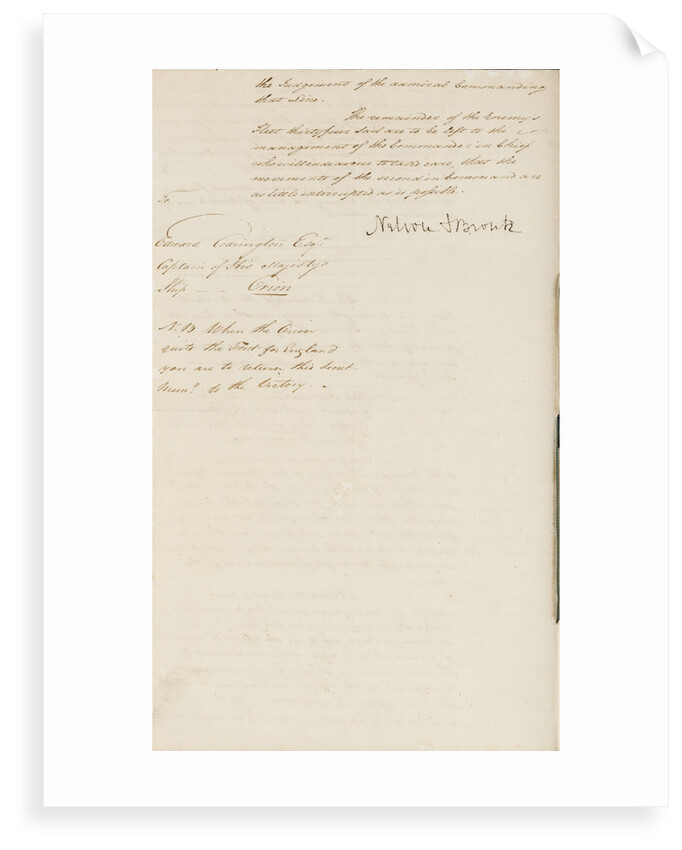 the Judgement of the admiral Commanding
that Line.
The remainder of the Enemy's
Fleet thirty four sail are to be left to the
management of the Commander in Chief
who will endeavour to take care, that the
movements of the second in Command are
as little interrupted as is possible.
Nelson & Bronte
To
Edward Codrington Esqr
Captain of His Majesty's
Ship - - Orion
N.B When the Orion
quits the Fleet for England
you are to return this Secret
Memo to the Victory.